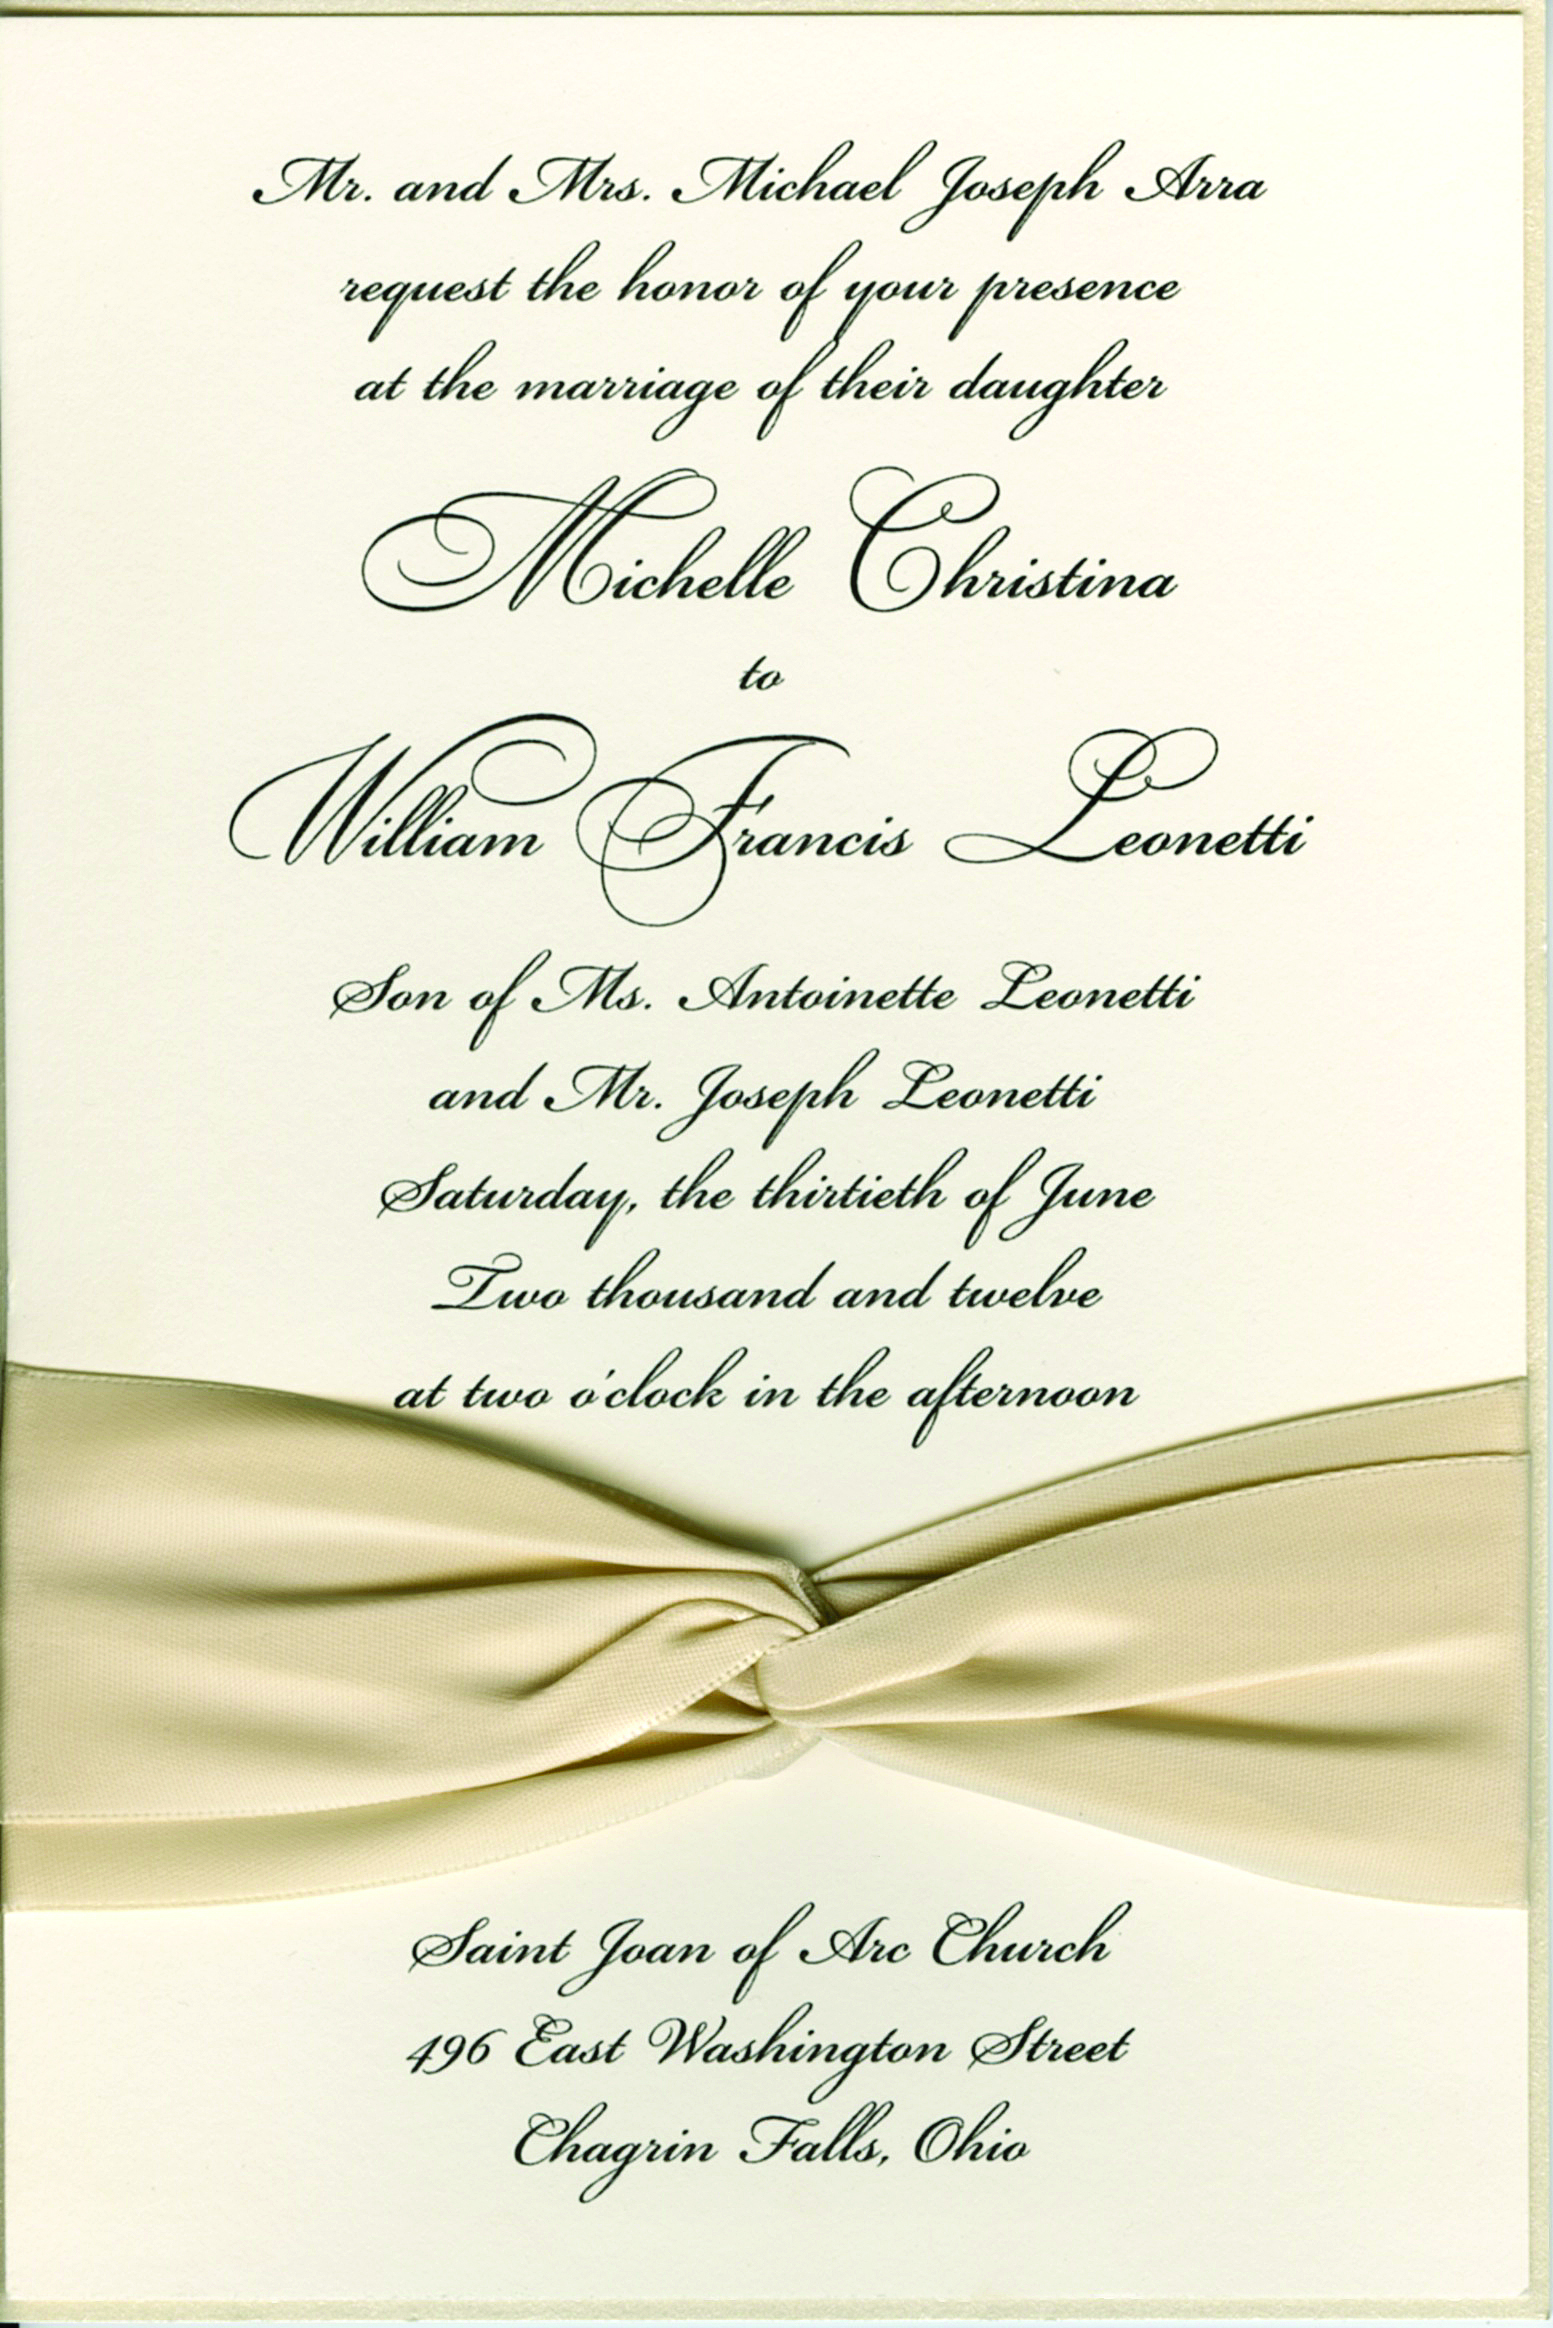 Mr. and Mrs. Michael Joseph Arra
request the honor of your presence
at the marriage of their daughter
Michelle Christina
to
William Francis Leonetti
Son of Ms. Antoinette Leonetti
and Mr. Joseph Leonetti
Saturday, the thirtieth of June
Two thousand and twelve
at two o'clock in the afternoon
Saint Joan of Arc Church
496 East Washington Street
Chagrin Falls, Ohio